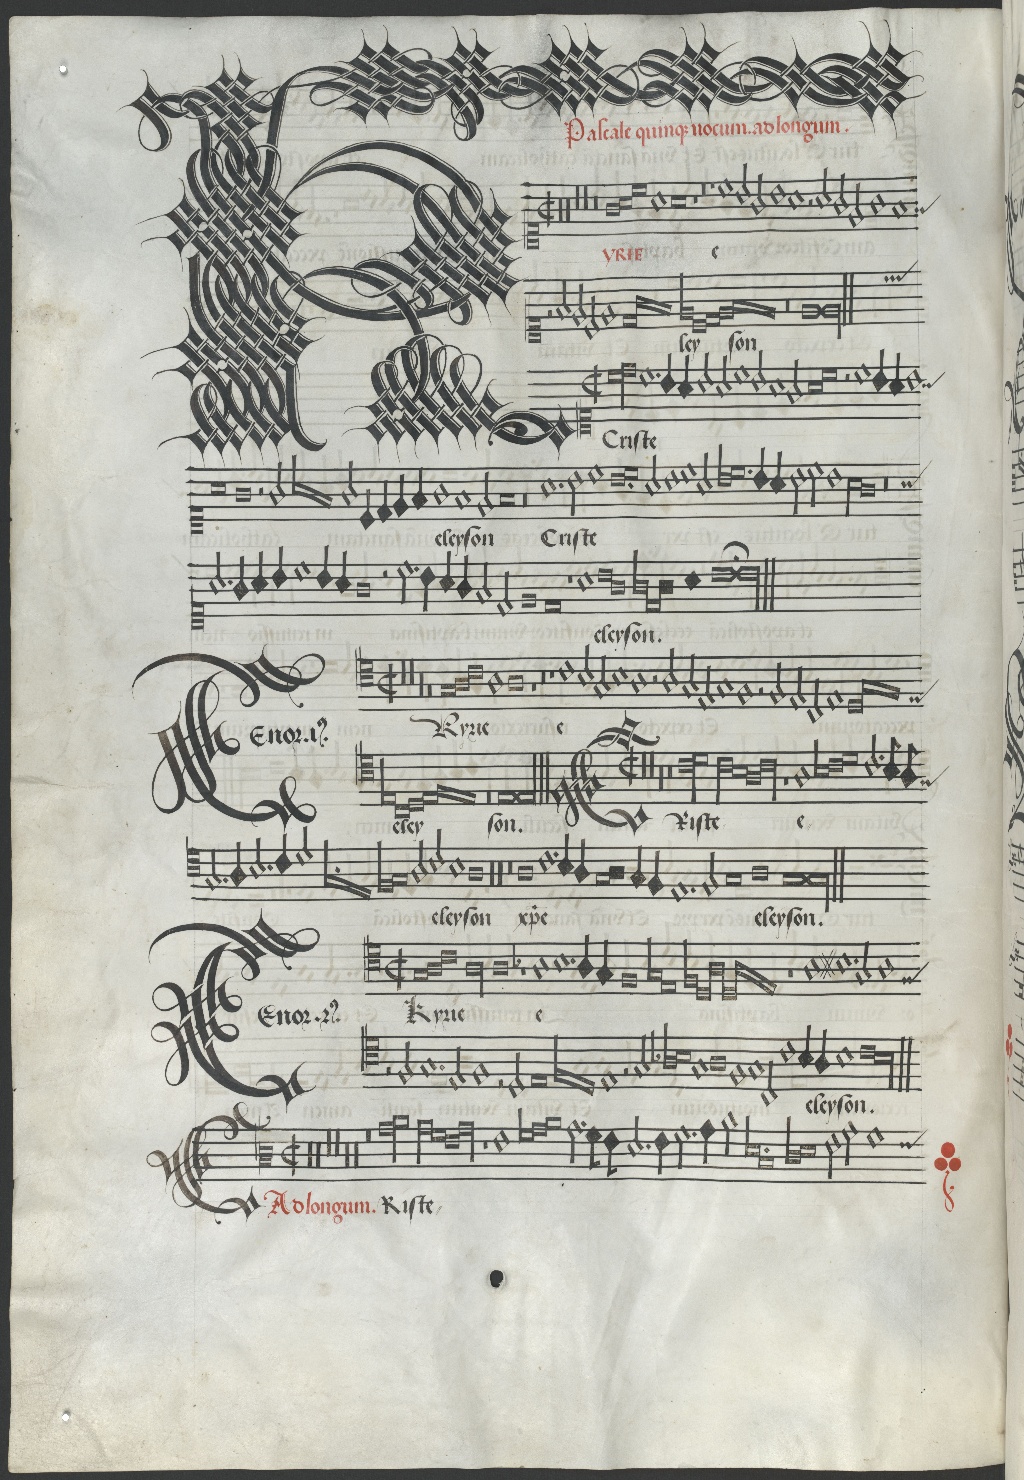 Pascale quinq; vocum. ad longum.
K
YRIE e
ley son
Criste
eleyson Criste
eleyson.
Tenor .1us.
Kyrie e
eley son. Criste e
eleyson xpe eleyson.
Tenor .2us.
Kyrie e
eleyson.
Ad longum. Criste